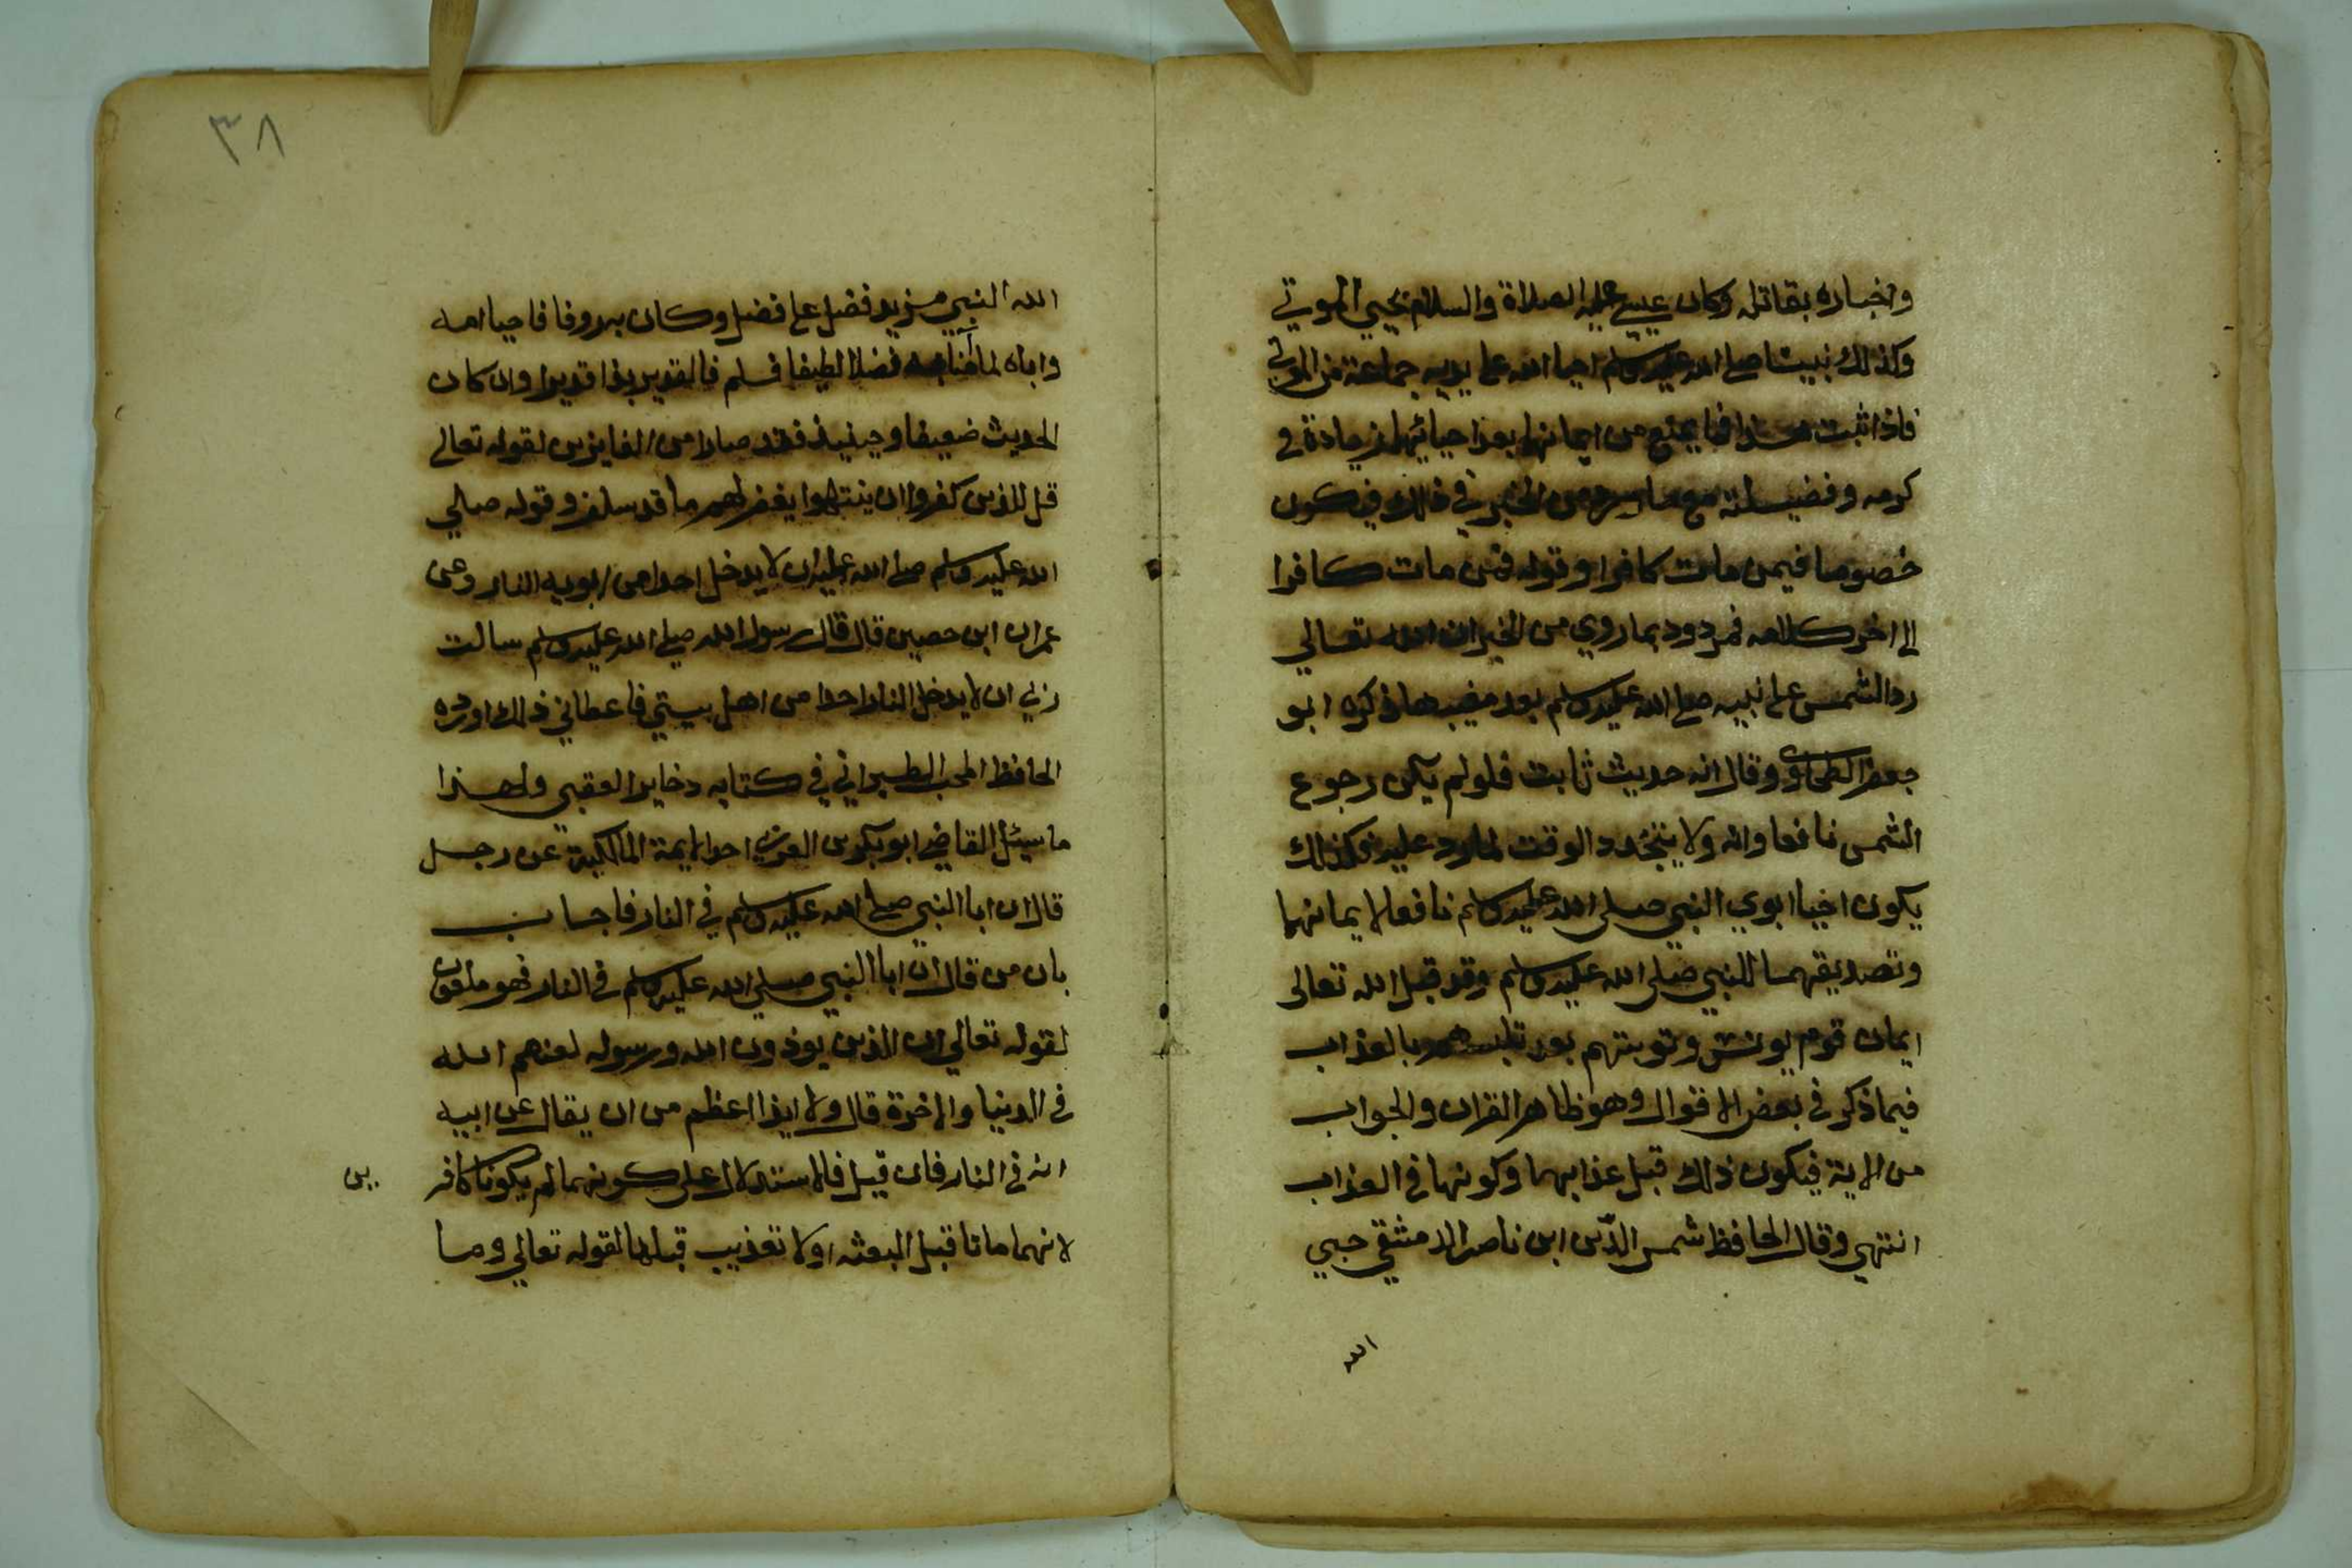 واخباره بقاتله وكان عيسى عليه الصلاة والسلام يحيي الموتي
وكذلك نبينا صلى الله عليه وسلم احيا الله على يديه جماعة من الموتى
فاذا ثبت هذا فما يمتنع من ايمانهما بعد احيائهما زيادة في
كرمه وفضيلته مع ما ورد من الخبر في ذلك فيكون
خصوصا فيمن مات كافرا وقوله فمن مات كافرا
الى اخر كلامه فمردود بما روي من الخبر ان الله تعالي
رد الشمس على نبيه صلى الله عليه وسلم بعد مغيبها ذكره ابو
جعفر الطحاوي وقال انه حديث ثابت فلو لم يكن رجوع
الشمس نافعا وانه ولا يتجدد الوقت لما رد عليه فكذلك
يكون احيا ابوي النبي صلى الله عليه وسلم نافعا لايمانهما
وتصديقهما للنبي صلى الله عليه وسلم وقد قبل الله تعالى
ايمان قوم يونس وتوبتهم بعد تلبسهم بالعذاب
فيما ذكر في بعض الاقوال وهو ظاهر القران والجواب
من الاية فيكون ذلك قبل عذابهما وكونهما في العذاب
انتهى وقال الحافظ شمس الدين ابن ناصر الدمشقي حبي
الله
٣٨
الله النبي مزيد فضل على فضل وكان به روفا فاحيا امه
واباه لما آمنا به فضلا لطيفا فسلم فالقدير بذا قديرا وان كان
الحديث ضعيفا وحينيذ فقد صارا من الفايزين لقوله تعالى
قل للذين كفروا ان ينتهوا يغفر لهم ما قد سلف وقوله صلي
الله عليه وسلم صلى الله عليه ان لا يدخل احدا من ابويه النار وعن
عمران ابن حصين قال قال رسول الله صلى الله عليه وسلم سالت
ربي ان لا يدخل النار احدا من اهل بيتي فاعطاني ذلك اورده
الحافظ المحب الطبراني في كتابه دخاير العقبى ولهذا
ما سيئل القاضي ابو بكر بن العربي احد الايمة المالكية عن رجل
قال ان ابا النبي صلى الله عليه وسلم في النار فاجاب
بان من قال ان ابا النبي صلى الله عليه وسلم في النار فهو ملعون
لقوله تعالي ان الذين يوذون الله ورسوله لعنهم الله
في الدنيا والاخرة قال ولا ايذا اعظم من ان يقال عن ابيه
انه في النار فان قيل فالاستدلال على كونهما لم يكونا كافر
ين
لانهما ماتا قبل البعثه اولا تعذيب قبلها لقوله تعالي وما